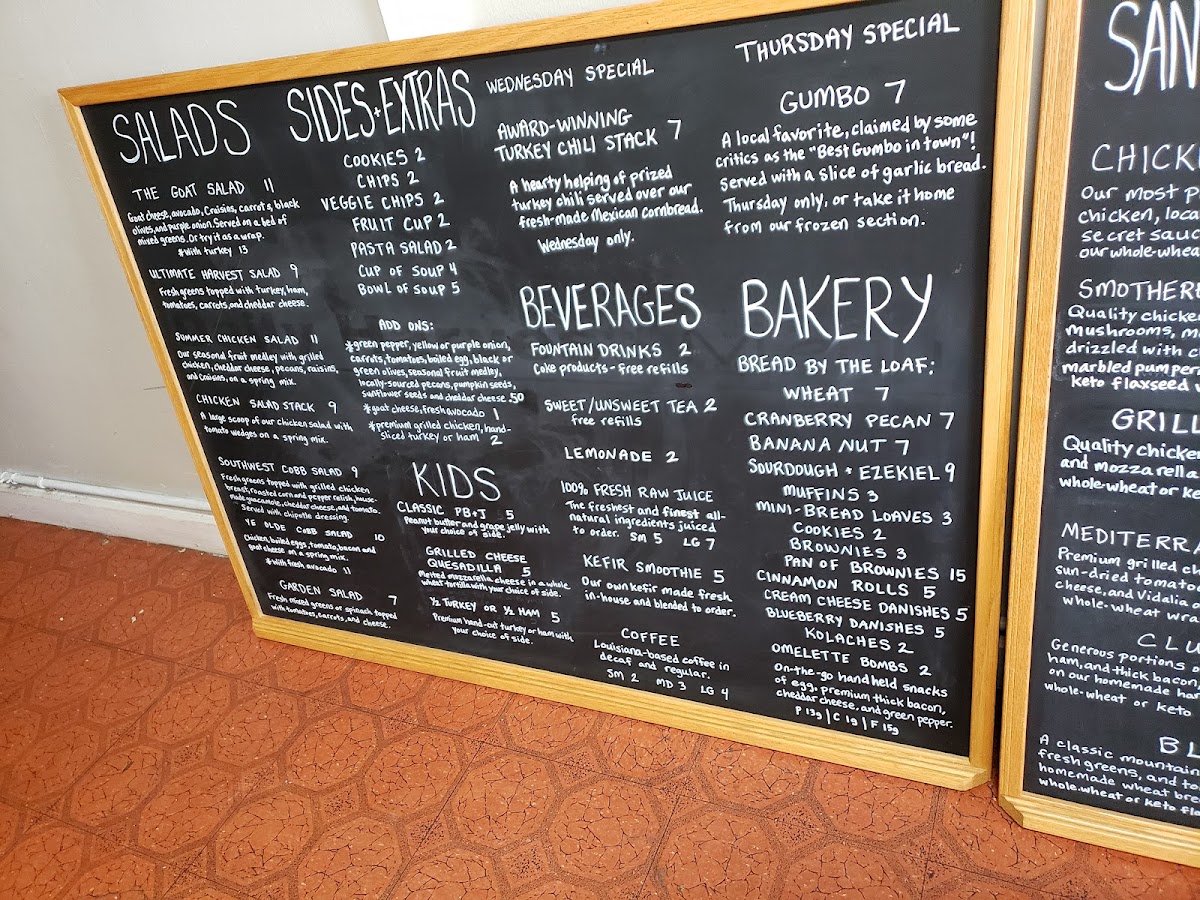 SALADS
THE GOAT SALAD 11
Goat cheese, avocado, Craisins, carrots, black
olives, and purple onion. Served on a bed of
mixed greens. Or try it as a wrap.
*with turkey 13
ULTIMATE HARVEST SALAD 9
Fresh greens topped with turkey, ham,
tomatoes, carrots, and cheddar cheese.
SUMMER CHICKEN SALAD 11
Our seasonal fruit medley with grilled
chicken, cheddar cheese, pecans, raisins,
and Craisins, on a spring mix.
CHICKEN SALAD STACK 9
A large scoop of our chicken salad with
tomato wedges on a spring mix.
SOUTHWEST COBB SALAD 9
Fresh greens topped with grilled chicken
breast, roasted corn and pepper relish, house-
made guacamole, cheddar cheese, and tomato.
Served with chipotle dressing.
YE OLDE COBB SALAD 10
Chicken, boiled eggs, tomato, bacon and
goat cheese on a spring mix.
*with fresh avocado 11
GARDEN SALAD 7
Fresh mixed greens or spinach topped
with tomatoes, carrots, and cheese.
SIDES + EXTRAS
COOKIES 2
CHIPS 2
VEGGIE CHIPS 2
FRUIT CUP 2
PASTA SALAD 2
CUP OF SOUP 4
BOWL OF SOUP 5
ADD ONS:
*green pepper, yellow or purple onion,
carrots, tomatoes, boiled egg, black or
green olives, seasonal fruit medley,
locally-sourced pecans, pumpkin seeds,
sunflower seeds and cheddar cheese .50
*goat cheese, fresh avocado 1
*premium grilled chicken, hand-
sliced turkey or ham 2
KIDS
CLASSIC PB+J 5
Peanut butter and grape jelly with
your choice of side.
GRILLED CHEESE
QUESADILLA 5
Melted mozzarella cheese in a whole
wheat tortilla with your choice of side.
½ TURKEY OR ½ HAM 5
Premium hand-cut turkey or ham with
your choice of side.
WEDNESDAY SPECIAL
AWARD-WINNING
TURKEY CHILI STACK 7
A hearty helping of prized
turkey chili served over our
fresh-made Mexican cornbread.
Wednesday only.
BEVERAGES
FOUNTAIN DRINKS 2
Coke products - free refills
SWEET/UNSWEET TEA 2
free refills
LEMONADE 2
100% FRESH RAW JUICE
The freshest and finest all-
natural ingredients juiced
to order. SM 5 LG 7
KEFIR SMOOTHIE 5
Our own kefir made fresh
in-house and blended to order.
COFFEE
Louisiana-based coffee in
decaf and regular.
SM 2 MD 3 LG 4
THURSDAY SPECIAL
GUMBO 7
A local favorite, claimed by some
critics as the "Best Gumbo in town"!
Served with a slice of garlic bread.
Thursday only, or take it home
from our frozen section.
BAKERY
BREAD BY THE LOAF:
WHEAT 7
CRANBERRY PECAN 7
BANANA NUT 7
SOURDOUGH + EZEKIEL 9
MUFFINS 3
MINI-BREAD LOAVES 3
COOKIES 2
BROWNIES 3
PAN OF BROWNIES 15
CINNAMON ROLLS 5
CREAM CHEESE DANISHES 5
BLUEBERRY DANISHES 5
KOLACHES 2
OMELETTE BOMBS 2
On-the-go handheld snacks
of egg, premium thick bacon,
cheddar cheese, and green pepper.
P 13g | C 1g | F 15g
SAN
CHICK
Our most p
chicken, loca
secret sauc
our whole-whea
SMOTHERE
Quality chicke
mushrooms, m
drizzled with c
marbled pumper
keto flaxseed
GRILL
Quality chicken
and mozzarella
whole-wheat or ket
MEDITERRA
Premium grilled ch
sun-dried tomato
cheese, and Vidalia o
whole-wheat wra
CLU
Generous portions
ham, and thick bacon,
on our homemade ha
whole-wheat or keto
BL
A classic mountain
fresh greens, and to
homemade wheat bre
whole-wheat or keto fla